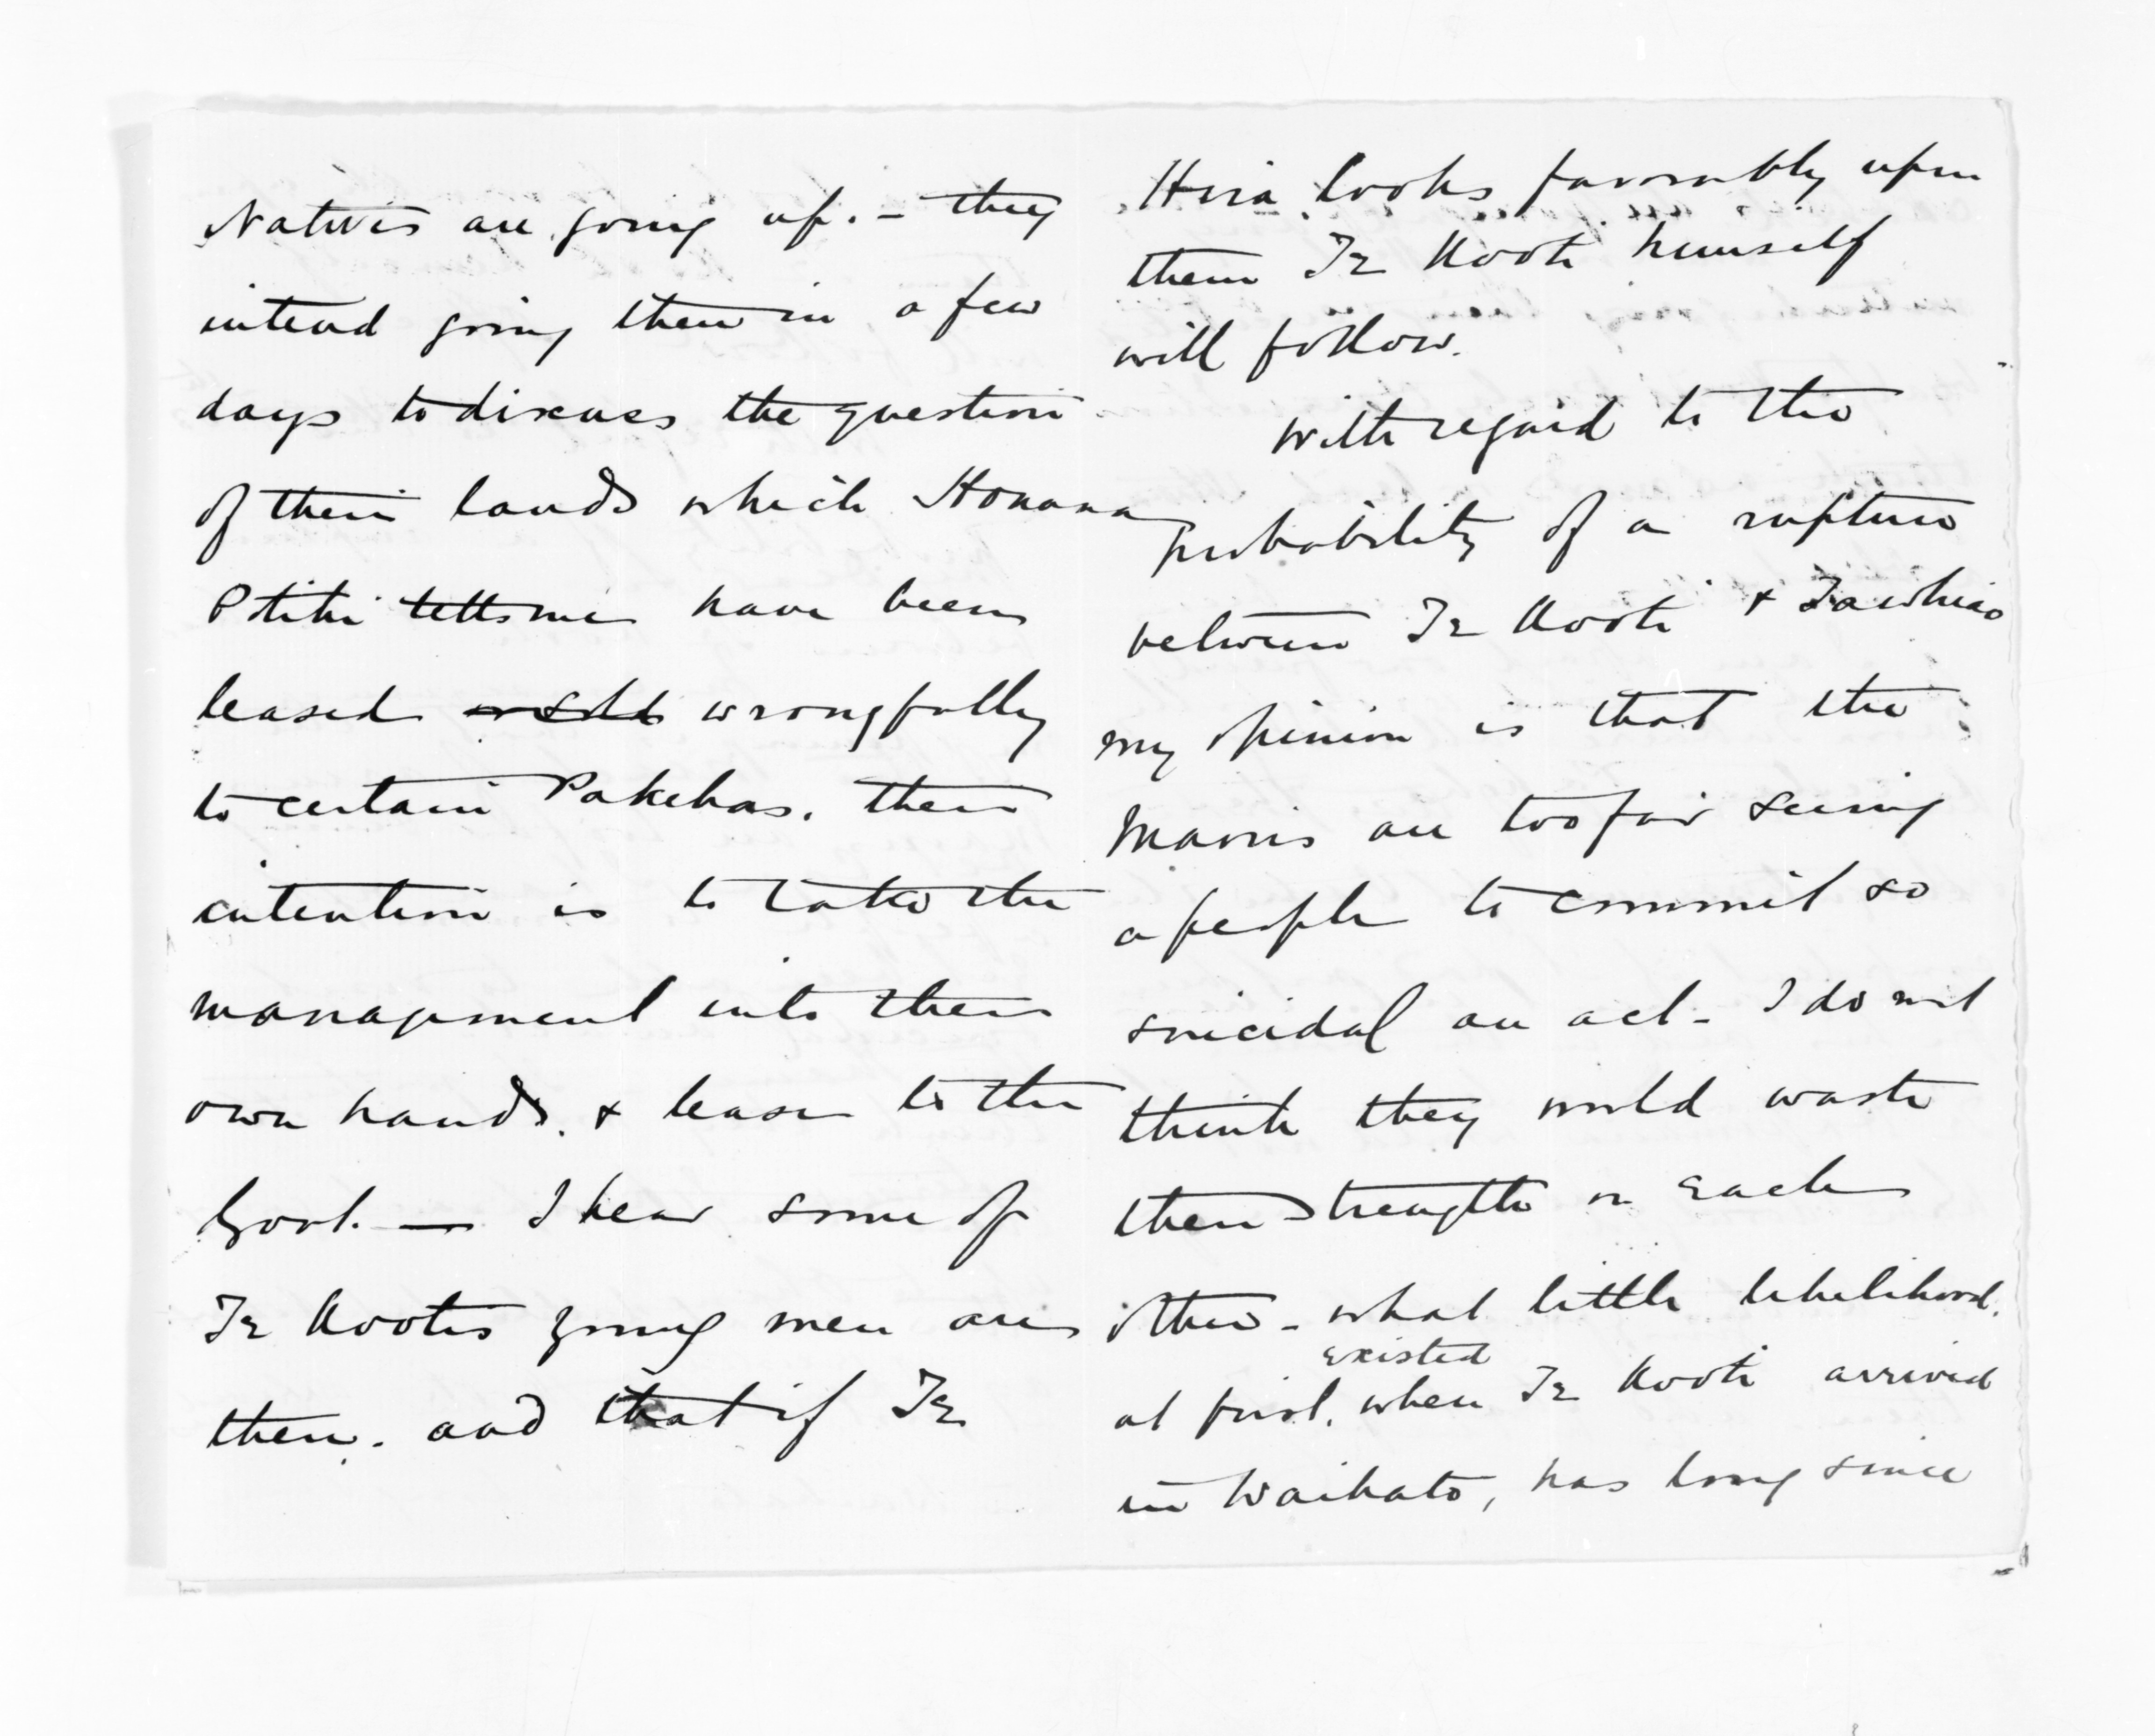 Natives are going up. - they
intend going there in a few
days to discuss the question
of their lands which Honana
Ptiti tells me have been
leased or sold wrongfully
to certain Pakehas. their
intention is to take the
management into their
own hands. & lease to the
Govt. — I hear some of
Te Kootis young men are
there. and that if Te
Hira looks favorably upon
them Te Kooti himself
will follow.
With regard to the
probability of a rupture
between Te Kooti & Tawhiao
my opinion is that the
Maoris are too far seeing
a people to commit so
suicidal an act - I do not
think they would waste
their strength on each
other - what little likelihood.
existed
at first, when Te Kooti arrived
in Waikato, has long since